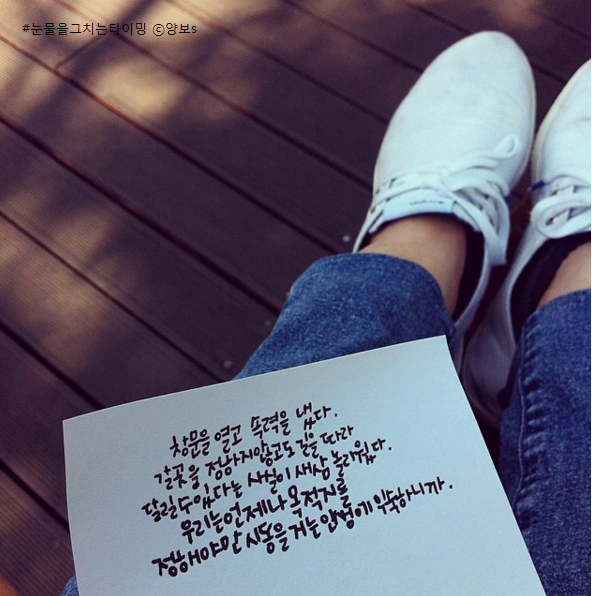 #눈물을그치는타이밍 ©양보s
창문을 열고 속력을 냈다.
갈곳을 정하지않고도 길을 따라
달릴수있다는 사실이 새삼 놀라웠다.
우리는언제나 목적지를
정해야만 시동을 거는 인생에 익숙하니까.